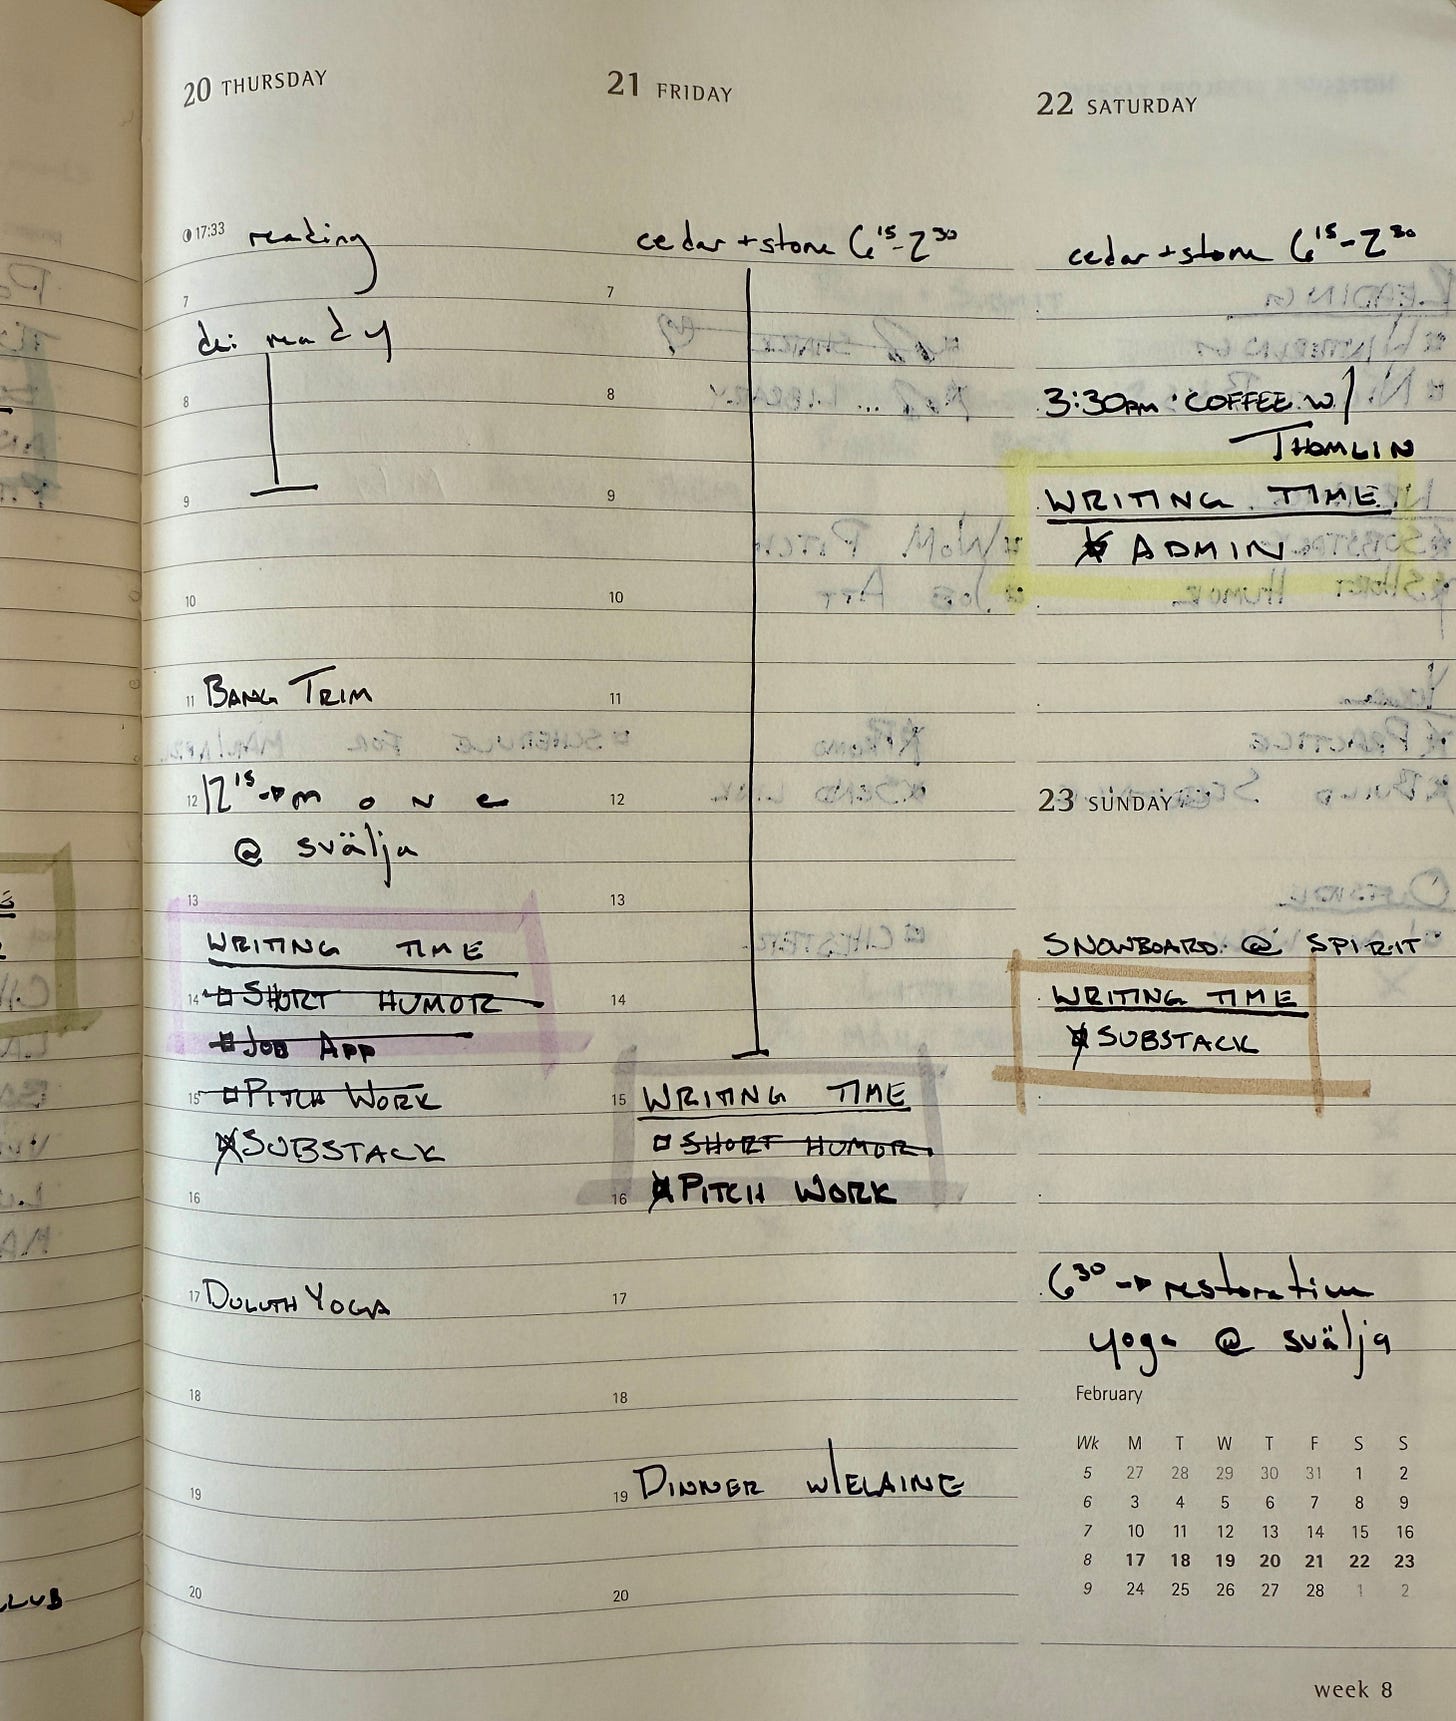 20 THURSDAY
17:33 reading
7
dei ready
8
9
10
11 BANG TRIM
12 12 15 → m o v e
@ svälja
13
WRITING TIME
14 SHORT HUMOR
JOB APP
15 PITCH WORK
SUBSTACK
16
17 DULUTH YOGA
18
19
20
21 FRIDAY
cedar + stone 6 15 - 2 30
7
8
9
10
11
12
13
14
15 WRITING TIME
SHORT HUMOR
16 PITCH WORK
17
18
19 DINNER W/ELAINE
20
22 SATURDAY
cedar + stone 6 15 - 2 30
3:30PM COFFEE W/
THOMLIN
WRITING TIME
ADMIN
23 SUNDAY
SNOWBOARD @ SPIRIT
WRITING TIME
SUBSTACK
6 30 → restorative
yoga @ svälja
February
Wk M T W T F S S
5 27 28 29 30 31 1 2
6 3 4 5 6 7 8 9
7 10 11 12 13 14 15 16
8 17 18 19 20 21 22 23
9 24 25 26 27 28 1 2
week 8